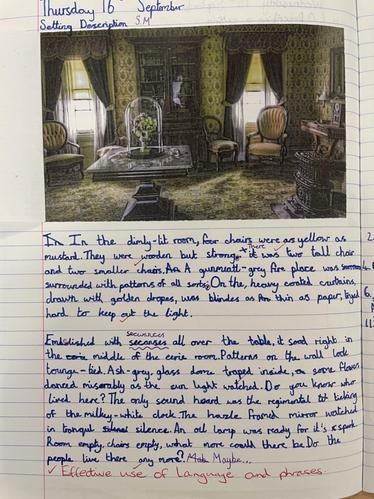 Thursday 16th September
Setting Description S.M
In In the dimly-lit room, four chairs were as yellow as
mustard. They were wooden but strong. There it was two tall chair
and two smaller chairs. A gunmetal-grey fire place was
surrounded with patterns of all sorts. On the, heavy coated curtains,
drawn with golden drapes, was blindes as thin as paper,
hard to keep out the light.
secuences
Emblished with secenses all over the table, it sood right in
the middle of the eerie room. Patterns on the wall lock
tounge-tied. Ash-grey, glass dome traped inside, a some flowers
danced miserably as the sun light watched. Do you know who
lived here? The only sound heard was the regimental tot ticking
of the milky-white clock. The hazle framed mirror watched
in tranquil silence. An oil lamp was ready for it's spark.
Room empty, chairs empty, what more could there be. Do the
people live there any more? Maybe...
✓ Effective use of language and phrases.
2
4
6
11